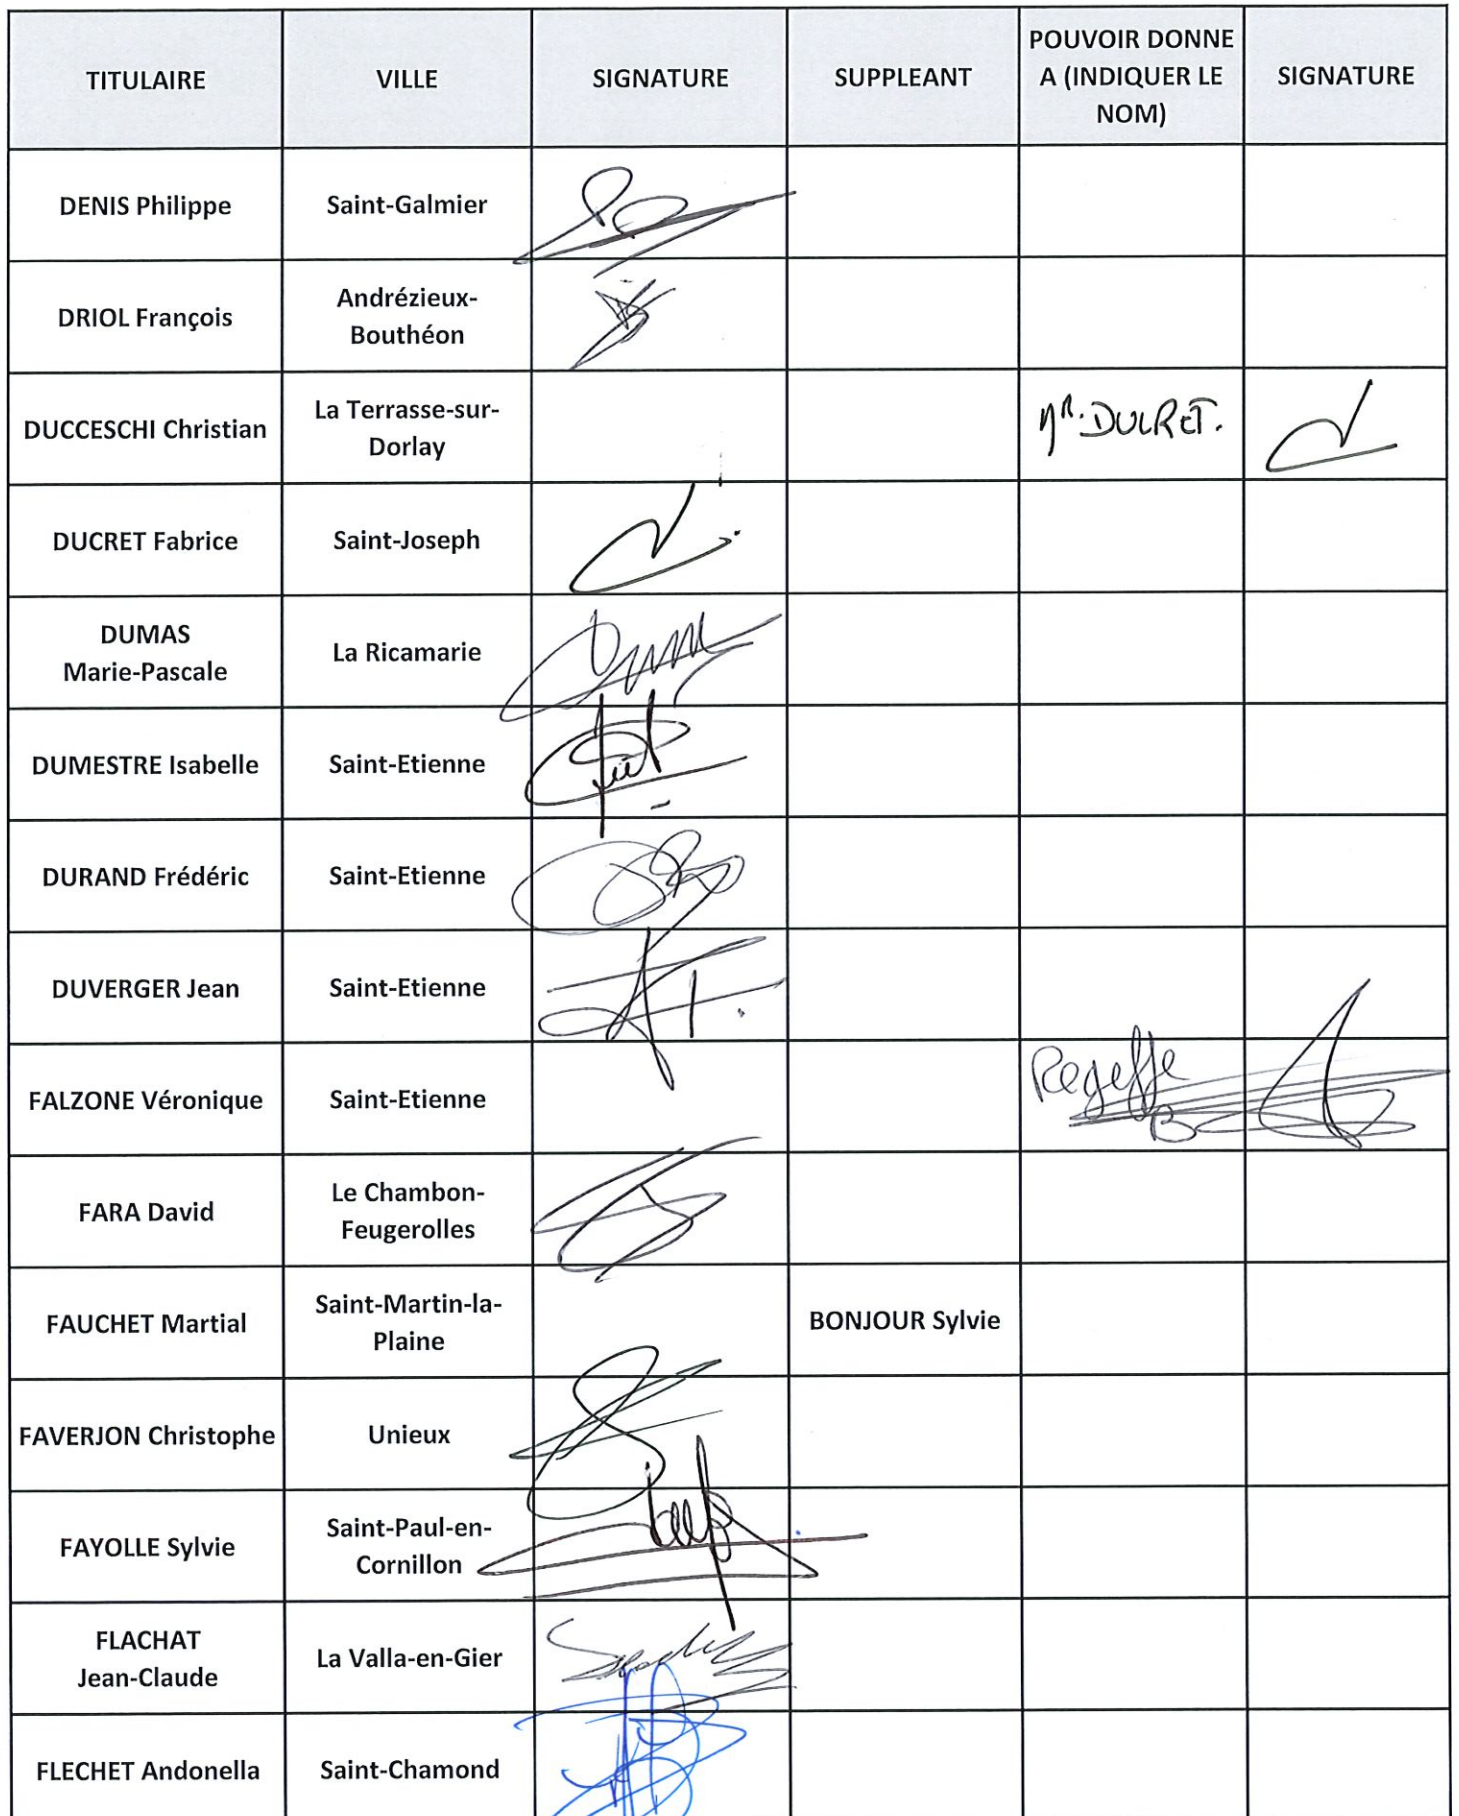 TITULAIRE
VILLE
SIGNATURE
SUPPLEANT
POUVOIR DONNE
A (INDIQUER LE
NOM)
SIGNATURE
DENIS Philippe
Saint-Galmier
DRIOL François
Andrézieux-
Bouthéon
DUCCESCHI Christian
La Terrasse-sur-
Dorlay
Mr. DUCRET.
DUCRET Fabrice
Saint-Joseph
DUMAS
Marie-Pascale
La Ricamarie
DUMESTRE Isabelle
Saint-Etienne
DURAND Frédéric
Saint-Etienne
DUVERGER Jean
Saint-Etienne
FALZONE Véronique
Saint-Etienne
FARA David
Le Chambon-
Feugerolles
FAUCHET Martial
Saint-Martin-la-
Plaine
BONJOUR Sylvie
FAVERJON Christophe
Unieux
FAYOLLE Sylvie
Saint-Paul-en-
Cornillon
FLACHAT
Jean-Claude
La Valla-en-Gier
FLECHET Andonella
Saint-Chamond